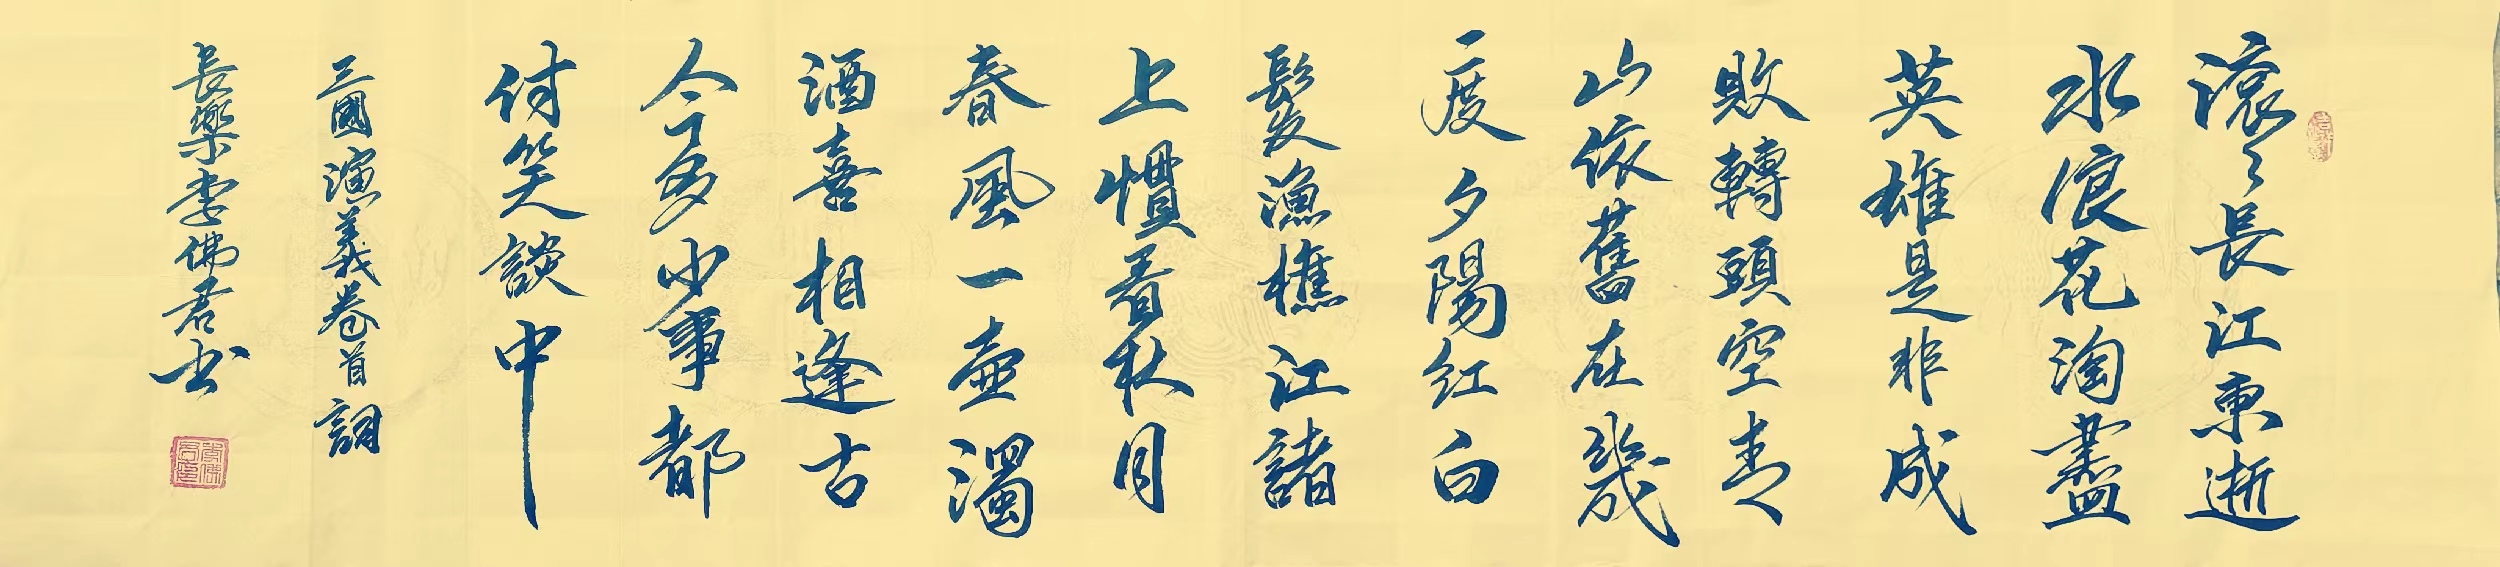 滚々長江東逝
水浪花淘盡
英雄是非成
敗轉頭空青
山依舊在幾
度夕陽紅白
髮漁樵江諸
上慣看秋月
春風一壺濁
酒喜相逢古
今多少事都
付笑談中
三國演義卷首詞
長樂李佛君书